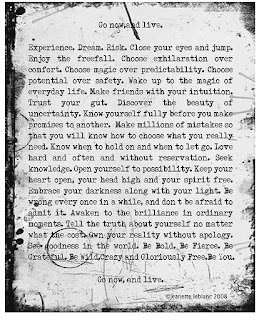 Go now, and live.
Experience. Dream. Risk. Close your eyes and jump.
Enjoy the freefall. Choose exhilaration over
comfort. Choose magic over predictability. Choose
potential over safety. Wake up to the magic of
everyday life. Make friends with your intuition.
Trust your gut. Discover the beauty of
uncertainty. Know yourself fully before you make
promises to another. Make millions of mistakes so
that you will know how to choose what you really
need. Know when to hold on and when to let go. Love
hard and often and without reservation. Seek
knowledge. Open yourself to possibility. Keep your
heart open, your head high and your spirit free.
Embrace your darkness along with your light. Be
wrong every once in a while, and don't be afraid to
admit it. Awaken to the brilliance in ordinary
moments. Tell the truth about yourself no matter
what the cost. Own your reality without apology.
See goodness in the world. Be Bold. Be Fierce. Be
Grateful. Be Wild, Crazy and Gloriously Free. Be You.
Go now, and live.
©jeanette leblanc 2008